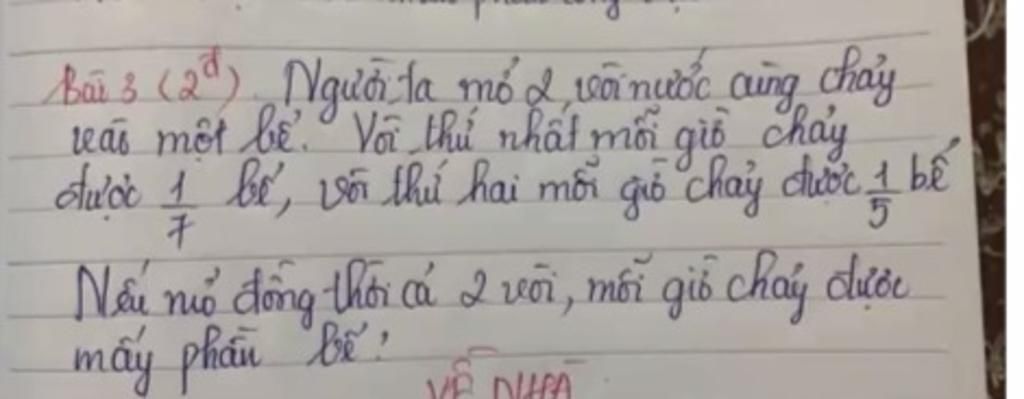 Bài 3 (2đ). Người ta mở 2 vòi nước cùng chảy
vào một bể. Vòi thứ nhất mỗi giờ chảy
được 1/7 bể, vòi thứ hai mỗi giờ chảy được 1/5 bể
Nếu mở đồng thời cả 2 vòi, mỗi giờ chảy được
mấy phần bể?
VỀ NHÀ